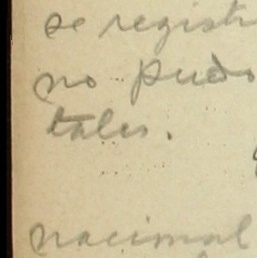 se registr
no pudo
tales.
nacional